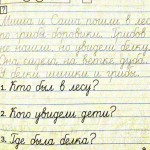 Миша и Саша пошли в лес
по грибы боровики. Грибов
не нашли, но увидели белку.
Она сидела на ветке дуба.
У белки шишки и грибы.
1. Кто был в лесу?
2. Кого увидели дети?
3. Где была белка?